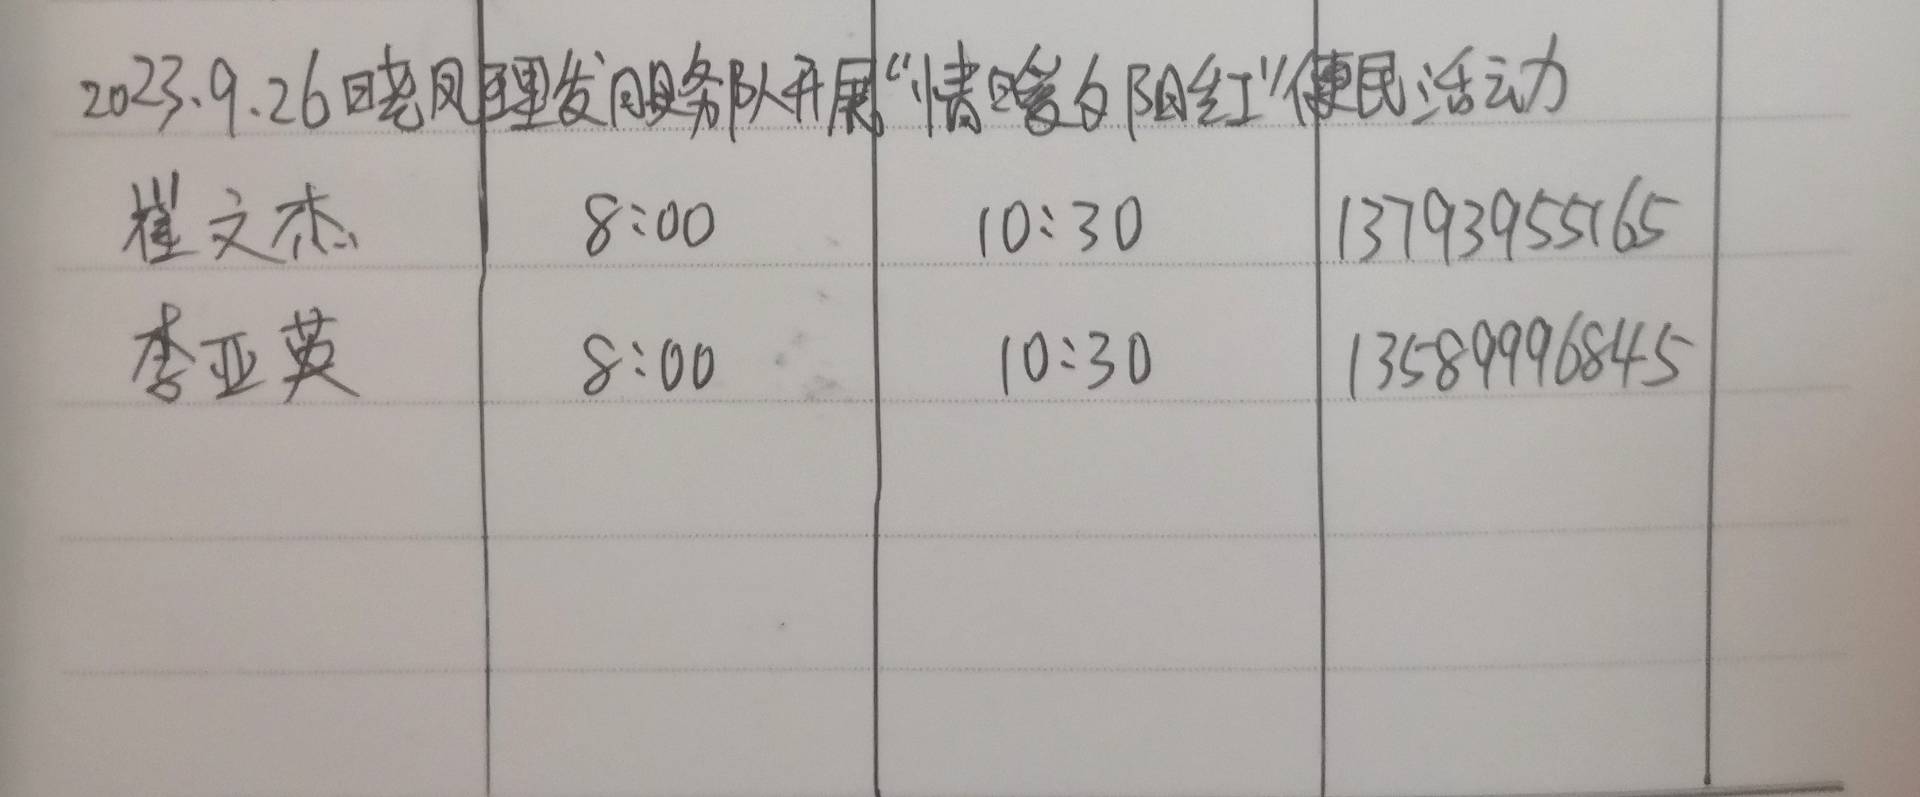 2023.9.26晓凤理发服务队开展“情暖夕阳红”便民活动
崔文杰 8:00 10:30 13793955165
李亚英 8:00 10:30 13589996845